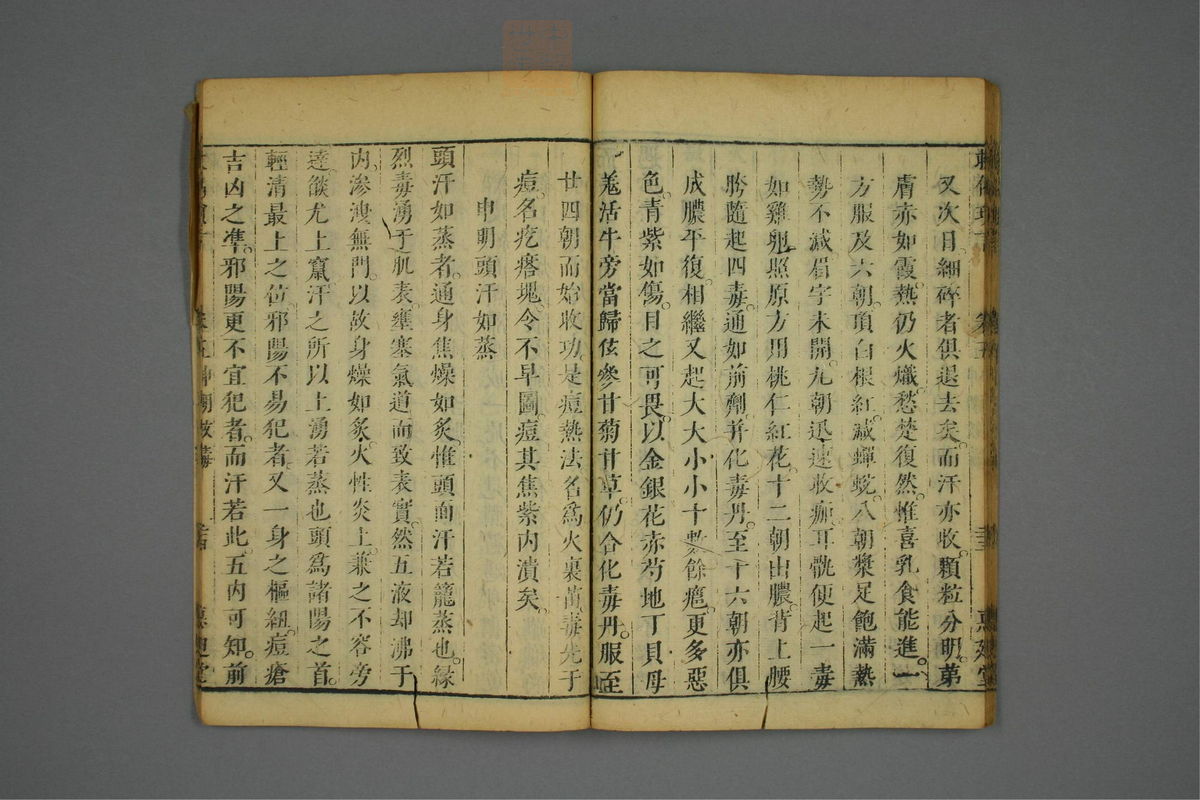 又次日細碎者俱退去矣。而汗亦收。顆粒分明。第
膚赤如霞。熱仍火熾。愁楚復然。惟喜乳食能進。一
方服及六朝。項白根紅。減蟬蛻。八朝漿足飽滿。熱
勢不減。眉宇未開。九朝迅速收痂。耳骯便起一毒
如雞卵。照原方用桃仁紅花。十二朝出膿。背上腰
胯隨起四毒。通如前劑。并化毒丹。至十六朝亦俱
成膿平復。相繼又起大大小小十數餘瘡。更多惡
色。青紫如傷。目之可畏。以金銀花赤芍地丁貝母
羗活牛旁當歸佉參甘菊甘草。仍合化毒丹。服至
廿四朝而始收功。是痘熱法名爲火裏苗。毒先于
痘。名疙瘩塊。令不早圖。痘其焦紫內潰矣。
申明頭汗如蒸
頭汗如蒸者。通身焦燥如炙。惟頭面汗若籠蒸也。緣
烈毒湧于肌表。壅塞氣道而致表實。然五液却沸于
內。滲洩無門。以故身燥如炙。火性炎上。兼之不容旁
達。燄尤上竄。汗之所以上湧若蒸也。頭爲諸陽之首。
輕清最上之位。邪陽不易犯者。又一身之樞紐。痘瘡
吉凶之準。邪陽更不宜犯者。而汗若此。五內可知。前